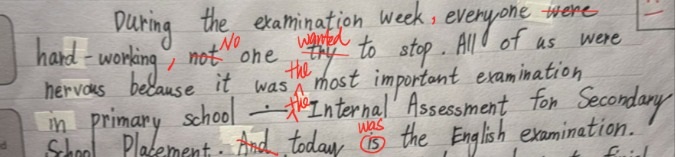 During the examination week, everyone were
hard-working, not No one try wanted to stop. All of us were
nervous because it was the most important examination
in primary school — the Internal Assessment for Secondary
School Placement. And today is was the English examination.